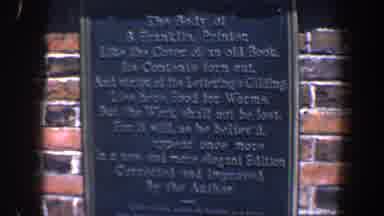 The Body of
B Franklin, Printer,
Like the Cover of an old Book,
Its Contents torn out,
And stript of its Lettering & Gilding,
Lies here, Food for Worms.
But the Work shall not be lost,
For it will, as he believ'd,
appear once more
In a new and more elegant Edition
Corrected and improved
By the Author